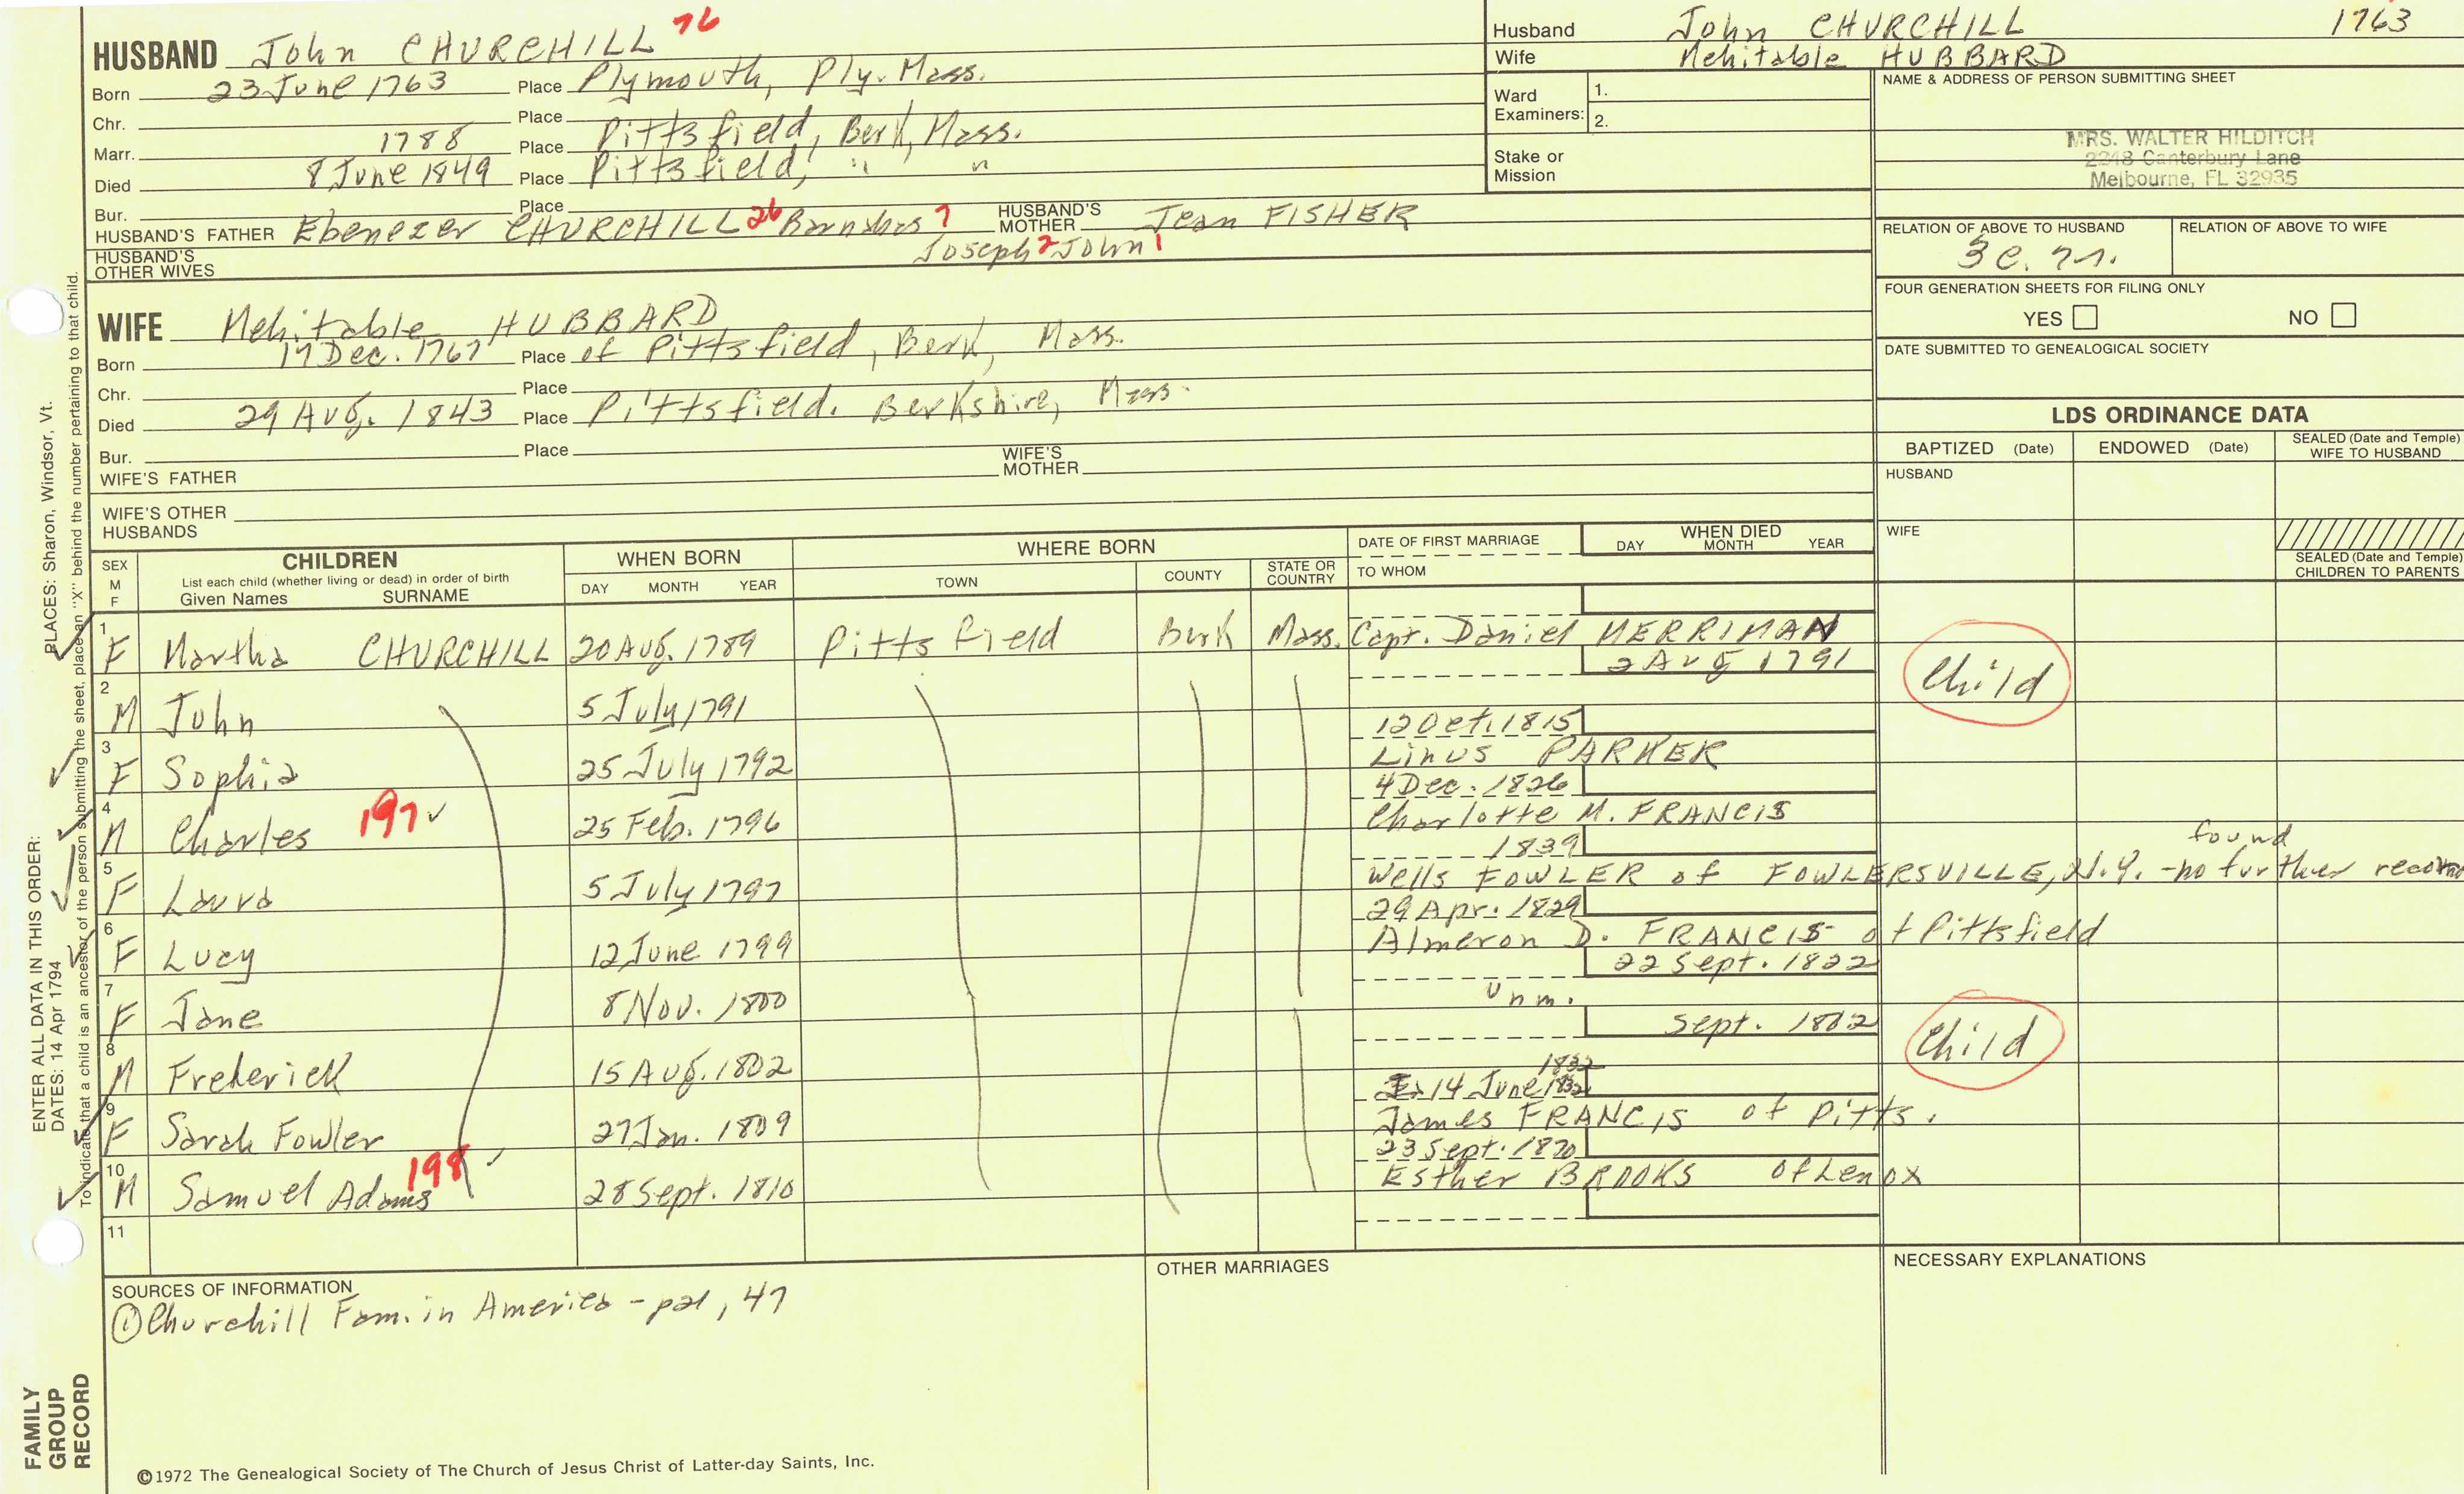 HUSBAND John CHURCHILL 76
Born 23 June 1763 Place Plymouth, Ply. Mass.
Chr. Place
Marr. 1788 Place Pittsfield, Berk, Mass.
Died 8 June 1849 Place Pittsfield, " "
Bur. Place
HUSBAND'S FATHER Ebenezer CHURCHILL 26 Barnabas 7 HUSBAND'S MOTHER Jean FISHER
Joseph 2 John 1
HUSBAND'S OTHER WIVES
Husband John CHURCHILL 1763
Wife Mehitable HUBBARD
Ward Examiners: 1.
2.
Stake or Mission
NAME & ADDRESS OF PERSON SUBMITTING SHEET
MRS. WALTER HILDITCH
2248 Canterbury Lane
Melbourne, FL 32935
RELATION OF ABOVE TO HUSBAND RELATION OF ABOVE TO WIFE
FOUR GENERATION SHEETS FOR FILING ONLY
YES NO
DATE SUBMITTED TO GENEALOGICAL SOCIETY
WIFE Mehitable HUBBARD
Born 17 Dec. 1767 Place of Pittsfield, Berk, Mass.
Chr. Place
Died 29 Aug. 1843 Place Pittsfield. Berkshire, Mass.
Bur. Place
WIFE'S FATHER WIFE'S MOTHER
WIFE'S OTHER HUSBANDS
LDS ORDINANCE DATA
BAPTIZED (Date) ENDOWED (Date) SEALED (Date and Temple) WIFE TO HUSBAND
HUSBAND
WIFE
SEALED (Date and Temple) CHILDREN TO PARENTS
SEX M F CHILDREN WHEN BORN WHERE BORN DATE OF FIRST MARRIAGE WHEN DIED
List each child (whether living or dead) in order of birth
Given Names SURNAME DAY MONTH YEAR TOWN COUNTY STATE OR COUNTRY TO WHOM DAY MONTH YEAR
1 F Martha CHURCHILL 20 Aug. 1789 Pittsfield Berk Mass. Capt. Daniel MERRIMAN
2 Aug 1791
2 M John 5 July 1791 Child
12 Oct. 1815
3 F Sophia 25 July 1792 Linus PARKER
4 Dec. 1826
4 M Charles 197 ✓ 25 Feb. 1796 Charlotte M. FRANCIS
1839 found
5 F Laura 5 July 1797 Wells FOWLER of FOWLERSVILLE, N.Y. - no further record
29 Apr. 1829
6 F Lucy 12 June 1799 Almeron D. FRANCIS of Pittsfield
22 Sept. 1822
7 F Jane 8 Nov. 1800 Unm.
Sept. 1802
8 M Frederick 15 Aug. 1802 Child
1832
14 June 1832
9 F Sarah Fowler 27 Jan. 1809 James FRANCIS of Pitts.
23 Sept. 1870
10 M Samuel Adams 198 ✓ 28 Sept. 1810 Esther BROOKS of Lenox
11
SOURCES OF INFORMATION
① Churchill Fam. in America - p21, 47
OTHER MARRIAGES
NECESSARY EXPLANATIONS
©1972 The Genealogical Society of The Church of Jesus Christ of Latter-day Saints, Inc.
FAMILY GROUP RECORD
ENTER ALL DATA IN THIS ORDER:
DATES: 14 Apr 1794 PLACES: Sharon, Windsor, Vt.
To indicate that a child is an ancestor of the person submitting the sheet, place an "X" behind the number pertaining to that child.